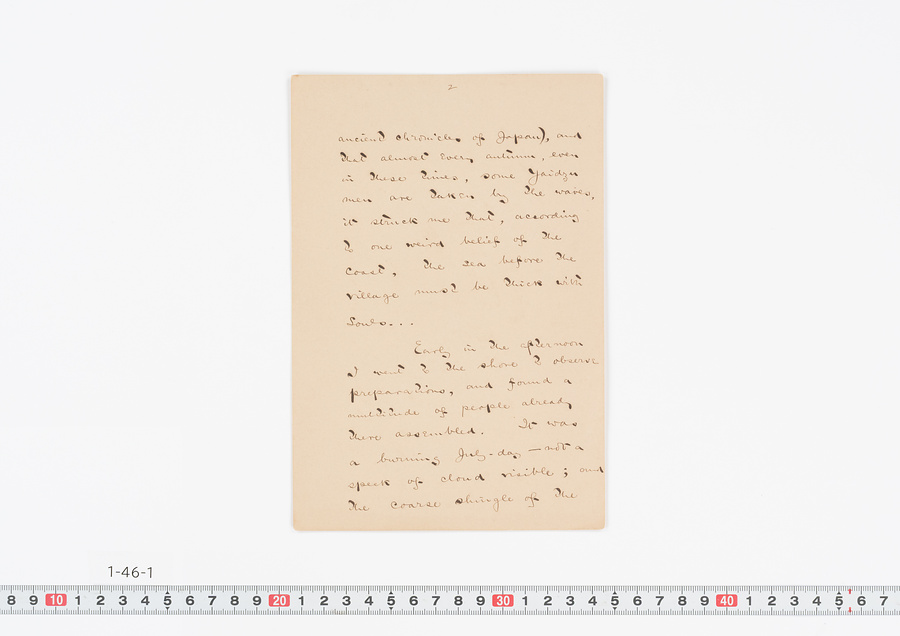 2
ancient chronicles of Japan), and
that almost every autumn, even
in these times, some Yaidzu
men are taken by the waves,
it struck me that, according
to one weird belief of the
coast, the sea before the
village must be thick with
souls...
Early in the afternoon
I went to the shore to observe
preparations, and found a
multitude of people already
there assembled. It was
a burning July-day — not a
speck of cloud visible; and
the coarse shingle of the
1-46-1
8 9 10 1 2 3 4 5 6 7 8 9 20 1 2 3 4 5 6 7 8 9 30 1 2 3 4 5 6 7 8 9 40 1 2 3 4 5 6 7